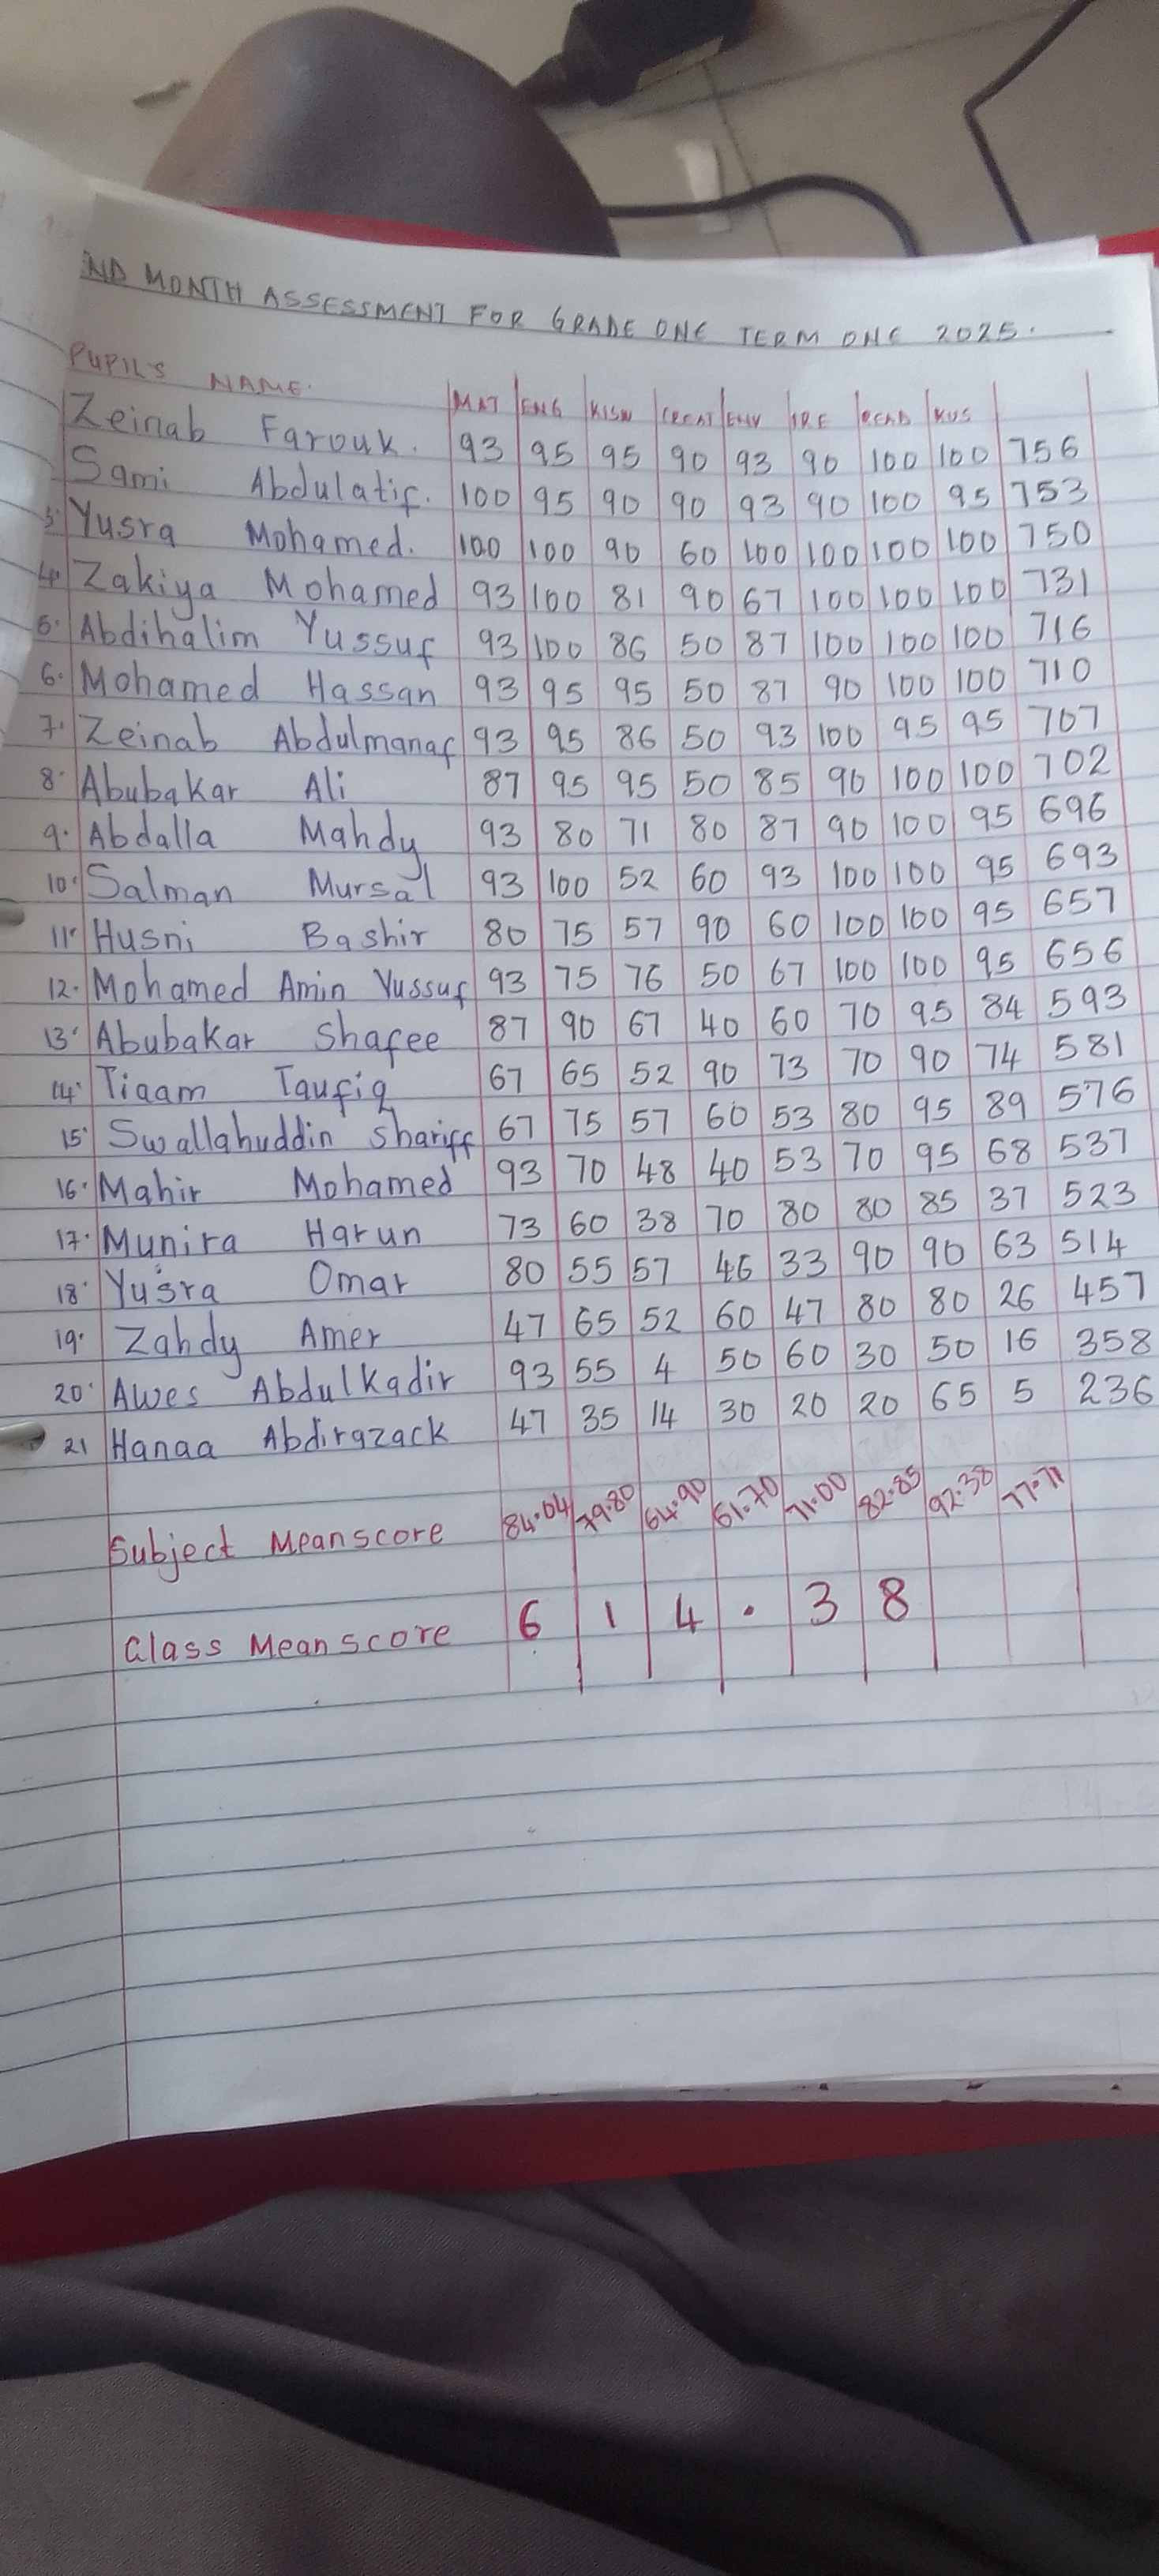 END MONTH ASSESSMENT FOR GRADE ONE TERM ONE 2025.
PUPIL'S NAME. MAT ENG KISW CREAT ENV IRE READ KUS
Zeinab Farouk. 93 95 95 90 93 90 100 100 756
Sami Abdulatif. 100 95 90 90 93 90 100 95 753
3. Yusra Mohamed. 100 100 90 60 100 100 100 100 750
4. Zakiya Mohamed 93 100 81 90 67 100 100 100 731
5. Abdihalim Yussuf 93 100 86 50 87 100 100 100 716
6. Mohamed Hassan 93 95 95 50 87 90 100 100 710
7. Zeinab Abdulmanaf 93 95 86 50 93 100 95 95 707
8. Abubakar Ali 87 95 95 50 85 90 100 100 702
9. Abdalla Mahdy 93 80 71 80 87 90 100 95 696
10. Salman Mursal 93 100 52 60 93 100 100 95 693
11. Husni Bashir 80 75 57 90 60 100 100 95 657
12. Mohamed Amin Yussuf 93 75 76 50 67 100 100 95 656
13. Abubakar Shafee 87 90 67 40 60 70 95 84 593
14. Tiaam Taufiq 67 65 52 90 73 70 90 74 581
15. Swallahuddin Shariff 67 75 57 60 53 80 95 89 576
16. Mahir Mohamed 93 70 48 40 53 70 95 68 537
17. Munira Harun 73 60 38 70 80 80 85 37 523
18. Yusra Omar 80 55 57 46 33 90 90 63 514
19. Zahdy Amer 47 65 52 60 47 80 80 26 457
20. Awes Abdulkadir 93 55 4 50 60 30 50 16 358
21 Hanaa Abdirazack 47 35 14 30 20 20 65 5 236
Subject Meanscore 84.04 79.80 64.90 61.70 71.00 82.85 92.38 77.71
Class Meanscore 6 1 4 . 3 8